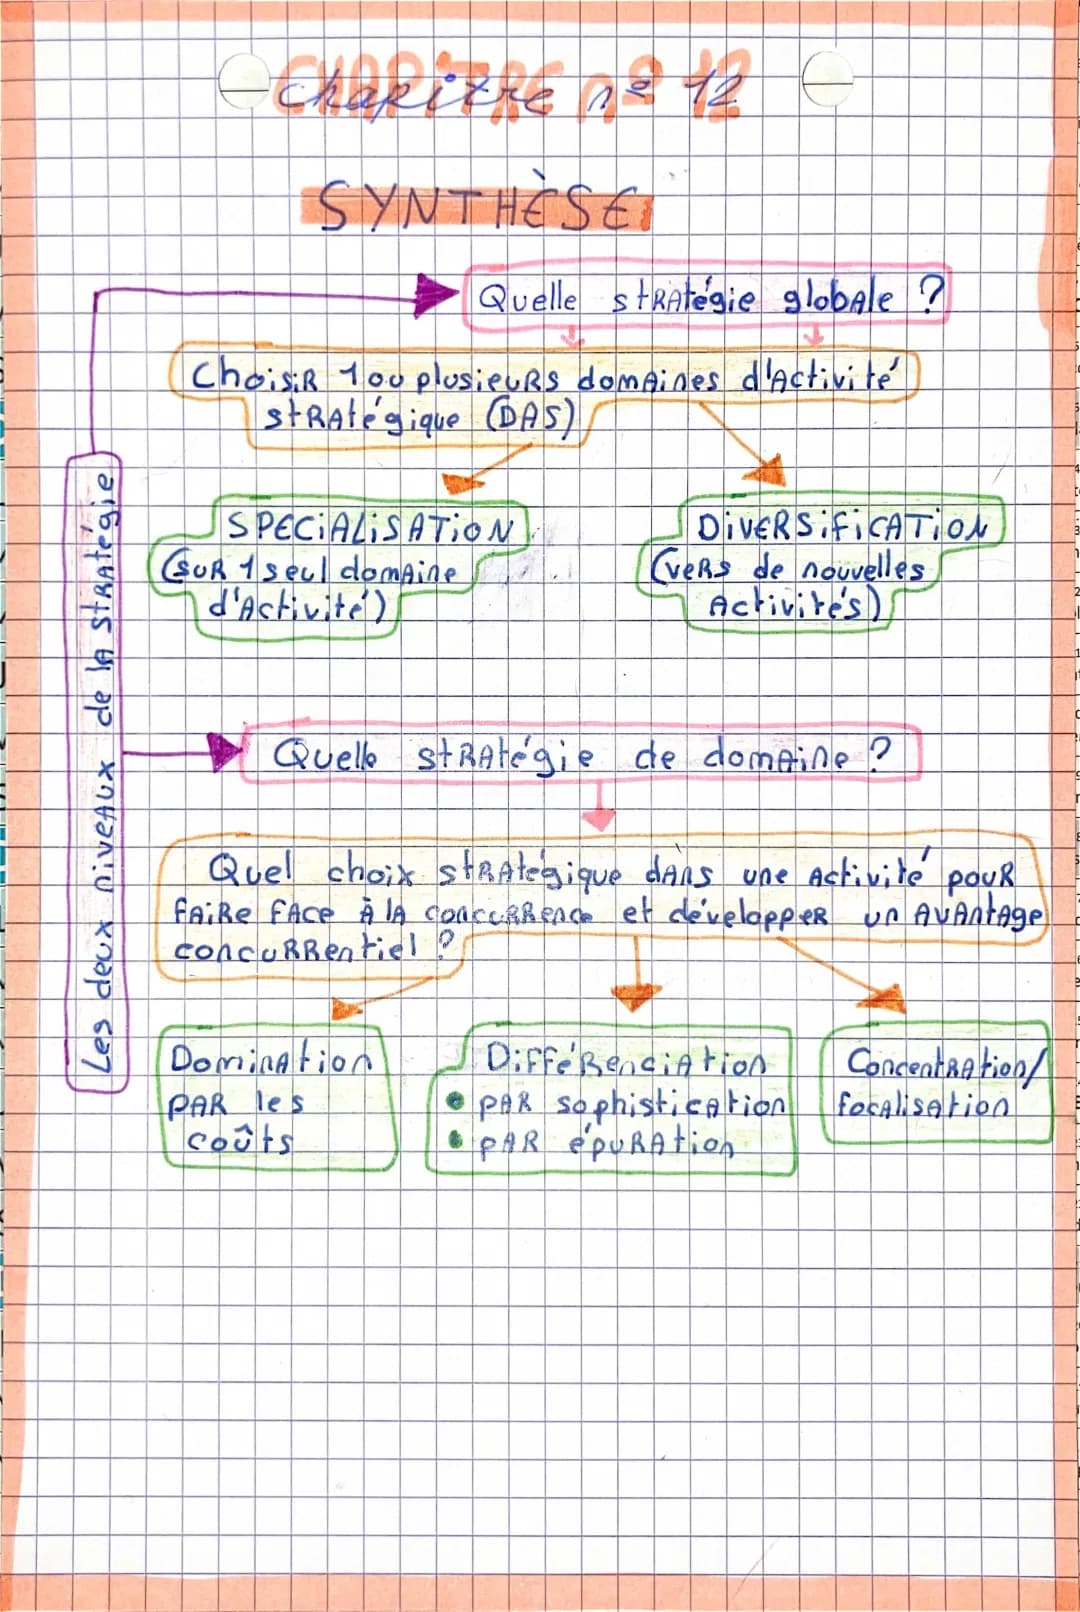 Chapitre n° 12
SYNTHÈSE
Les deux niveaux de la stratégie
Quelle stratégie globale ?
Choisir 1 ou plusieurs domaines d'activité
stratégique (DAS)
SPECIALISATION
(sur 1 seul domaine
d'activité)
DIVERSIFICATION
(vers de nouvelles
activités)
Quelle stratégie de domaine ?
Quel choix stratégique dans une activité pour
faire face à la concurrence et développer un avantage
concurrentiel ?
Domination
par les
coûts
Différenciation
• par sophistication
• par épuration
Concentration/
focalisation